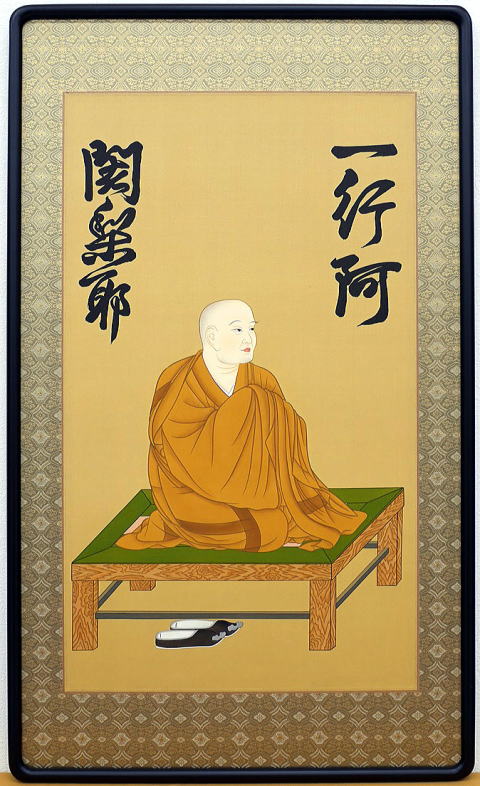 一行阿
闍梨耶